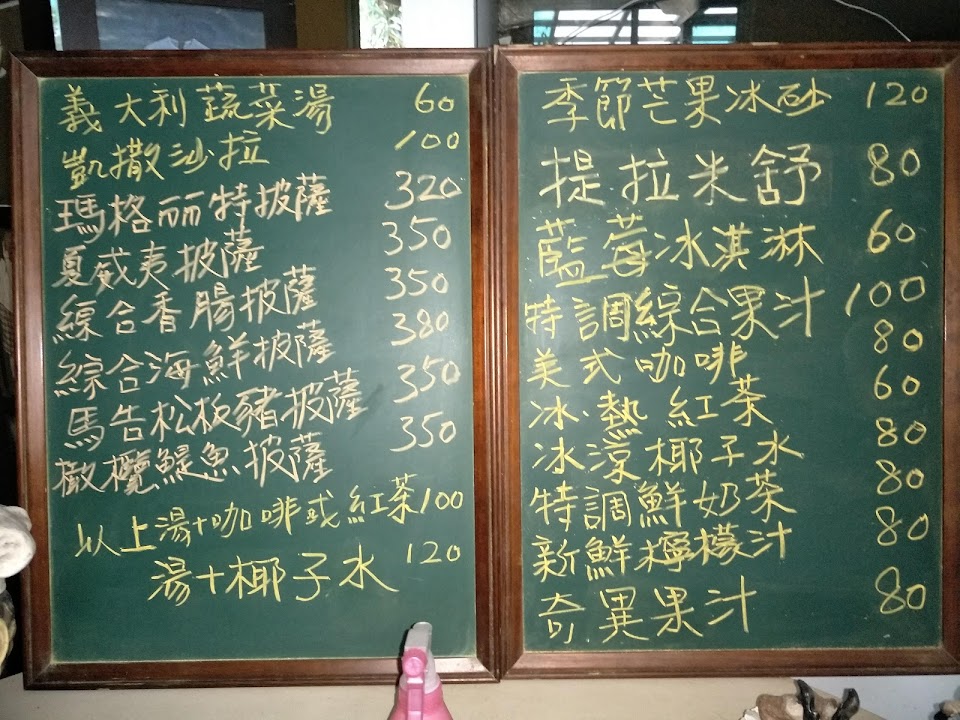 義大利蔬菜湯 60
凱撒沙拉 100
瑪格丽特披薩 320
夏威夷披薩 350
綜合香腸披薩 350
綜合海鮮披薩 380
馬告松板豬披薩 350
橄欖鯷魚披薩 350
以上湯+咖啡或紅茶 100
湯+椰子水 120
季節芒果冰砂 120
提拉米舒 80
藍莓冰淇淋 60
特調綜合果汁 100
美式咖啡 80
冰.熱紅茶 60
冰涼椰子水 80
特調鮮奶茶 80
新鮮檸檬汁 80
奇異果汁 80